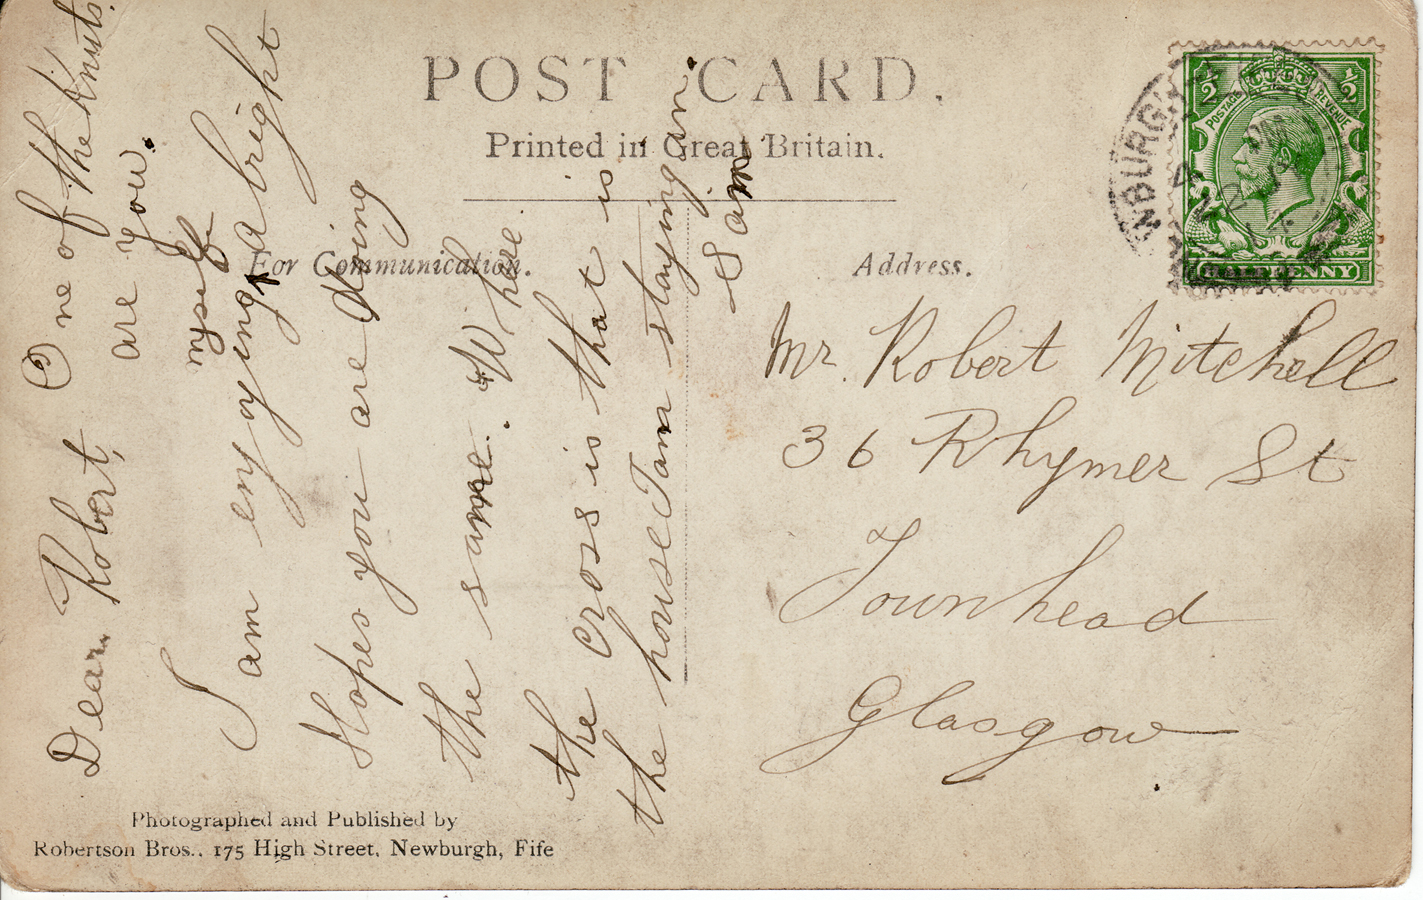 POST CARD.
Printed in Great Britain.
For Communication.
Address.
½ ½
POSTAGE REVENUE
HALFPENNY
NBURGH
Dear Robert, One of the Knuts.
are you.
myself
I am enyoying ^ abright
Hopes you are doing
the same. Whee
the cross is that is
the house I am staying in.
Sam
Mr. Robert Mitchell
36 Rhymer St
Townhead
Glasgow
Photographed and Published by
Robertson Bros., 175 High Street, Newburgh, Fife